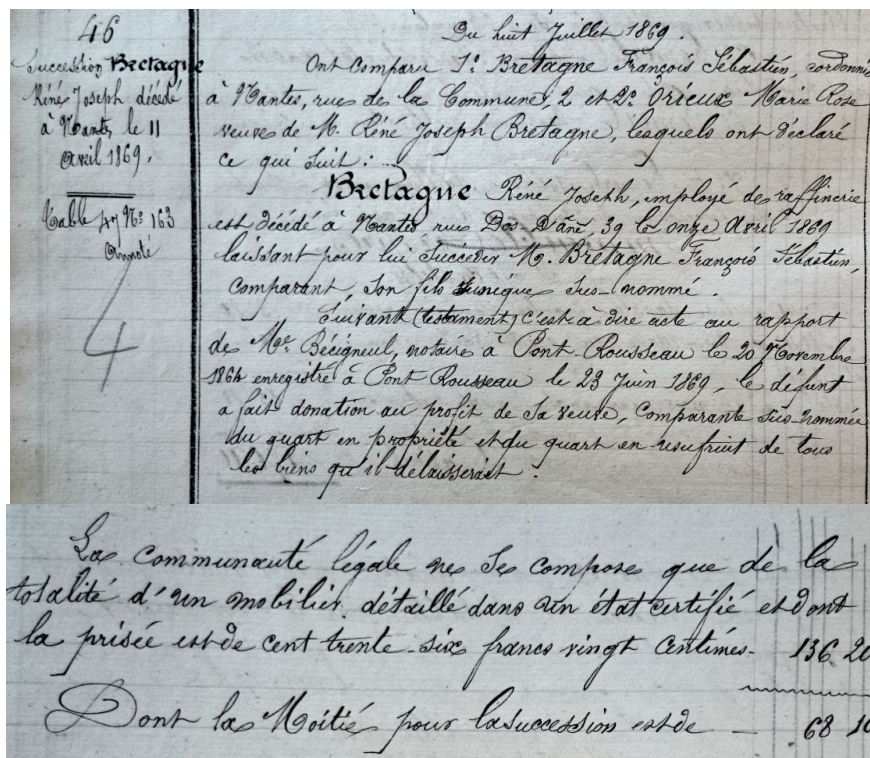 46
Succession Bretagne
Réné Joseph décédé
à Nantes le 11
Avril 1869.
Table 47 N° 163
Annoté
4
Du huit Juillet 1869.
Ont Comparu 1° Bretagne François Sébastien, cordonnier
à Nantes, rue de la Commune, 2 et 2° Orieux Marie Rose
veuve de M. Réné Joseph Bretagne, lesquels ont déclaré
ce qui suit :
Bretagne Réné Joseph, employé de raffinerie
est décédé à Nantes, rue Dos-d'âne, 39 le onze Avril 1869
laissant pour lui Succéder M. Bretagne François Sébastien,
comparant, son fils unique sus-nommé.
Suivant (testament) c'est à dire acte au rapport
de Me Bécigneul, notaire à Pont Rousseau le 20 Novembre
1864 enregistré à Pont Rousseau le 23 Juin 1869, le défunt
a fait donation au profit de sa veuve, Comparante sus-nommée
du quart en propriété et du quart en usufruit de tous
les biens qu'il délaisserait.
La communauté légale ne se compose que de la
totalité d'un mobilier détaillé dans un état certifié et dont
la prisée est de cent trente-six francs vingt centimes - 136 20
Dont la Moitié pour la succession est de - 68 10